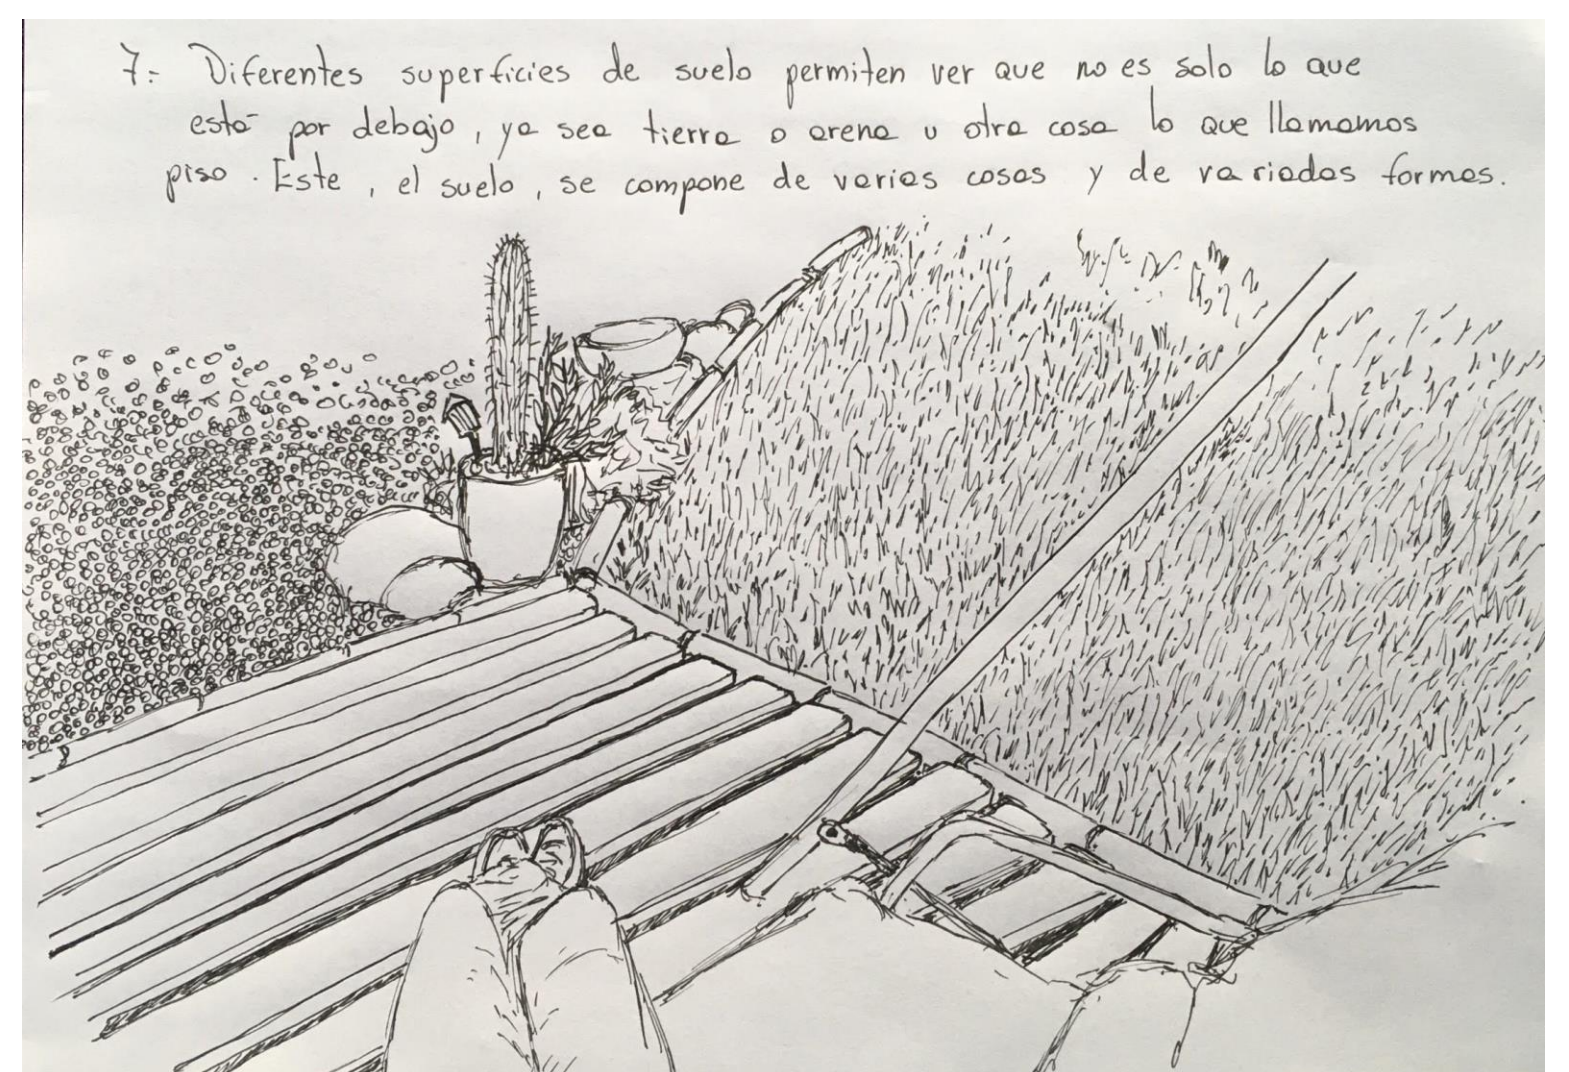 7.- Diferentes superficies de suelo permiten ver que no es solo lo que
está por debajo, ya sea tierra o arena u otra cosa lo que llamamos
piso. Este, el suelo, se compone de varias cosas y de variadas formas.